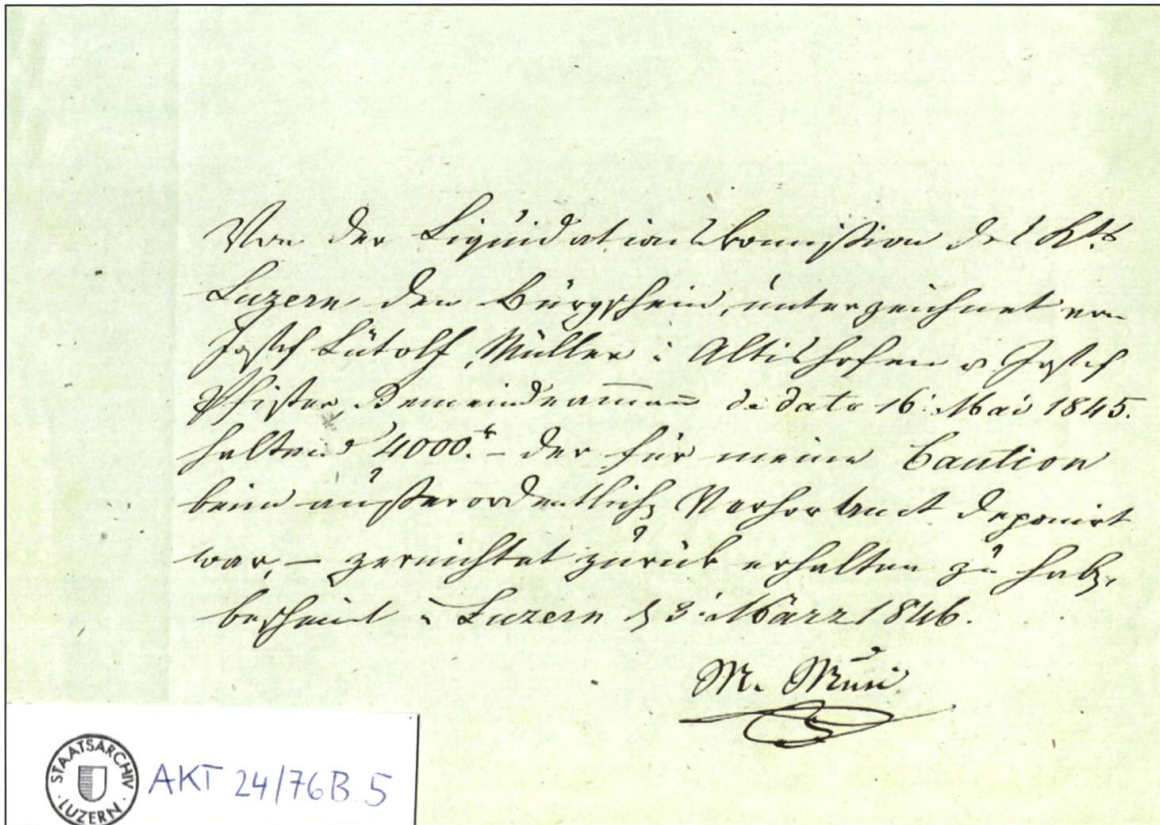 Von der Liquidationskommission des Kts
Luzern den Bürgschein, unterzeichnet von
Josef Lütolf, Müller i Altishofen u Josef
Pfister, Gemeindeammann de dato 16. Mai 1845.
haltend 4000.fr – der für meine Caution
beim außerordentlich Verhöramt deponirt
war, – zernichtet zurük erhalten zu hab
bescheint i Luzern d 3. März 1846.
M.
STAATSARCHIV LUZERN
AKT 24/76B.5